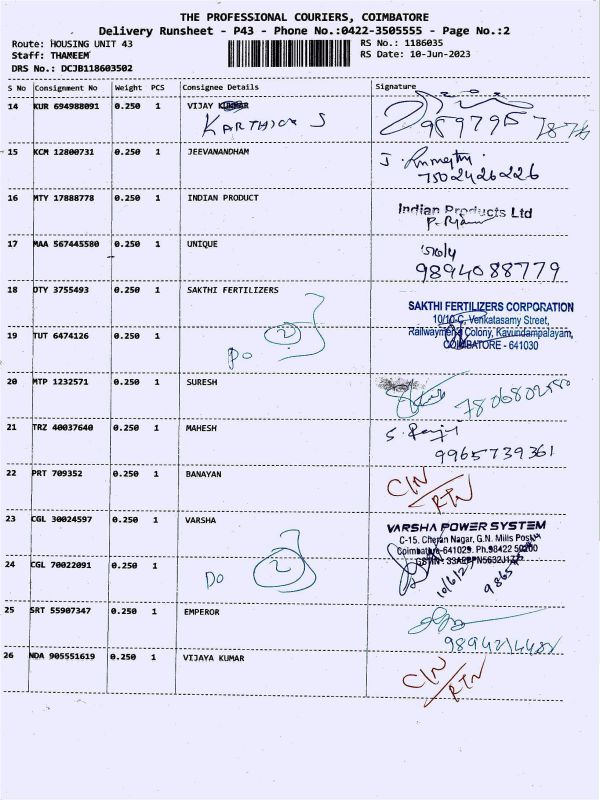 THE PROFESSIONAL COURIERS, COIMBATORE
Delivery Runsheet - P43 - Phone No.:0422-3505555 - Page No.:2
Route: HOUSING UNIT 43 RS No.: 1186035
Staff: THAMEEM RS Date: 10-Jun-2023
DRS No.: DCJB118603502
S No Consignment No Weight PCS Consignee Details Signature
14 KUR 694988091 0.250 1 VIJAY
KARTHICK S
15 KCM 12800731 0.250 1 JEEVANANDHAM
7502426226
16 MTY 17888778 0.250 1 INDIAN PRODUCT
Indian Products Ltd
17 MAA 567445580 0.250 1 UNIQUE
9894088779
18 DTY 3755493 0.250 1 SAKTHI FERTILIZERS
SAKTHI FERTILIZERS CORPORATION
10/10-C, Venkatasamy Street,
19 TUT 6474126 0.250 1 Do 2 Railwaymens Colony, Kavundampalayam,
COIMBATORE - 641030
20 MTP 1232571 0.250 1 SURESH
21 TRZ 40037640 0.250 1 MAHESH
9965739361
22 PRT 709352 0.250 1 BANAYAN
C/N
RTN
23 CGL 30024597 0.250 1 VARSHA
VARSHA POWER SYSTEM
C-15. Cheran Nagar, G.N. Mills Post,
Coimbatore-641029. Ph.98422 50200
24 CGL 70022091 0.250 1 Do 2
25 SRT 55907347 0.250 1 EMPEROR
26 NDA 905551619 0.250 1 VIJAYA KUMAR
C/N
RTN